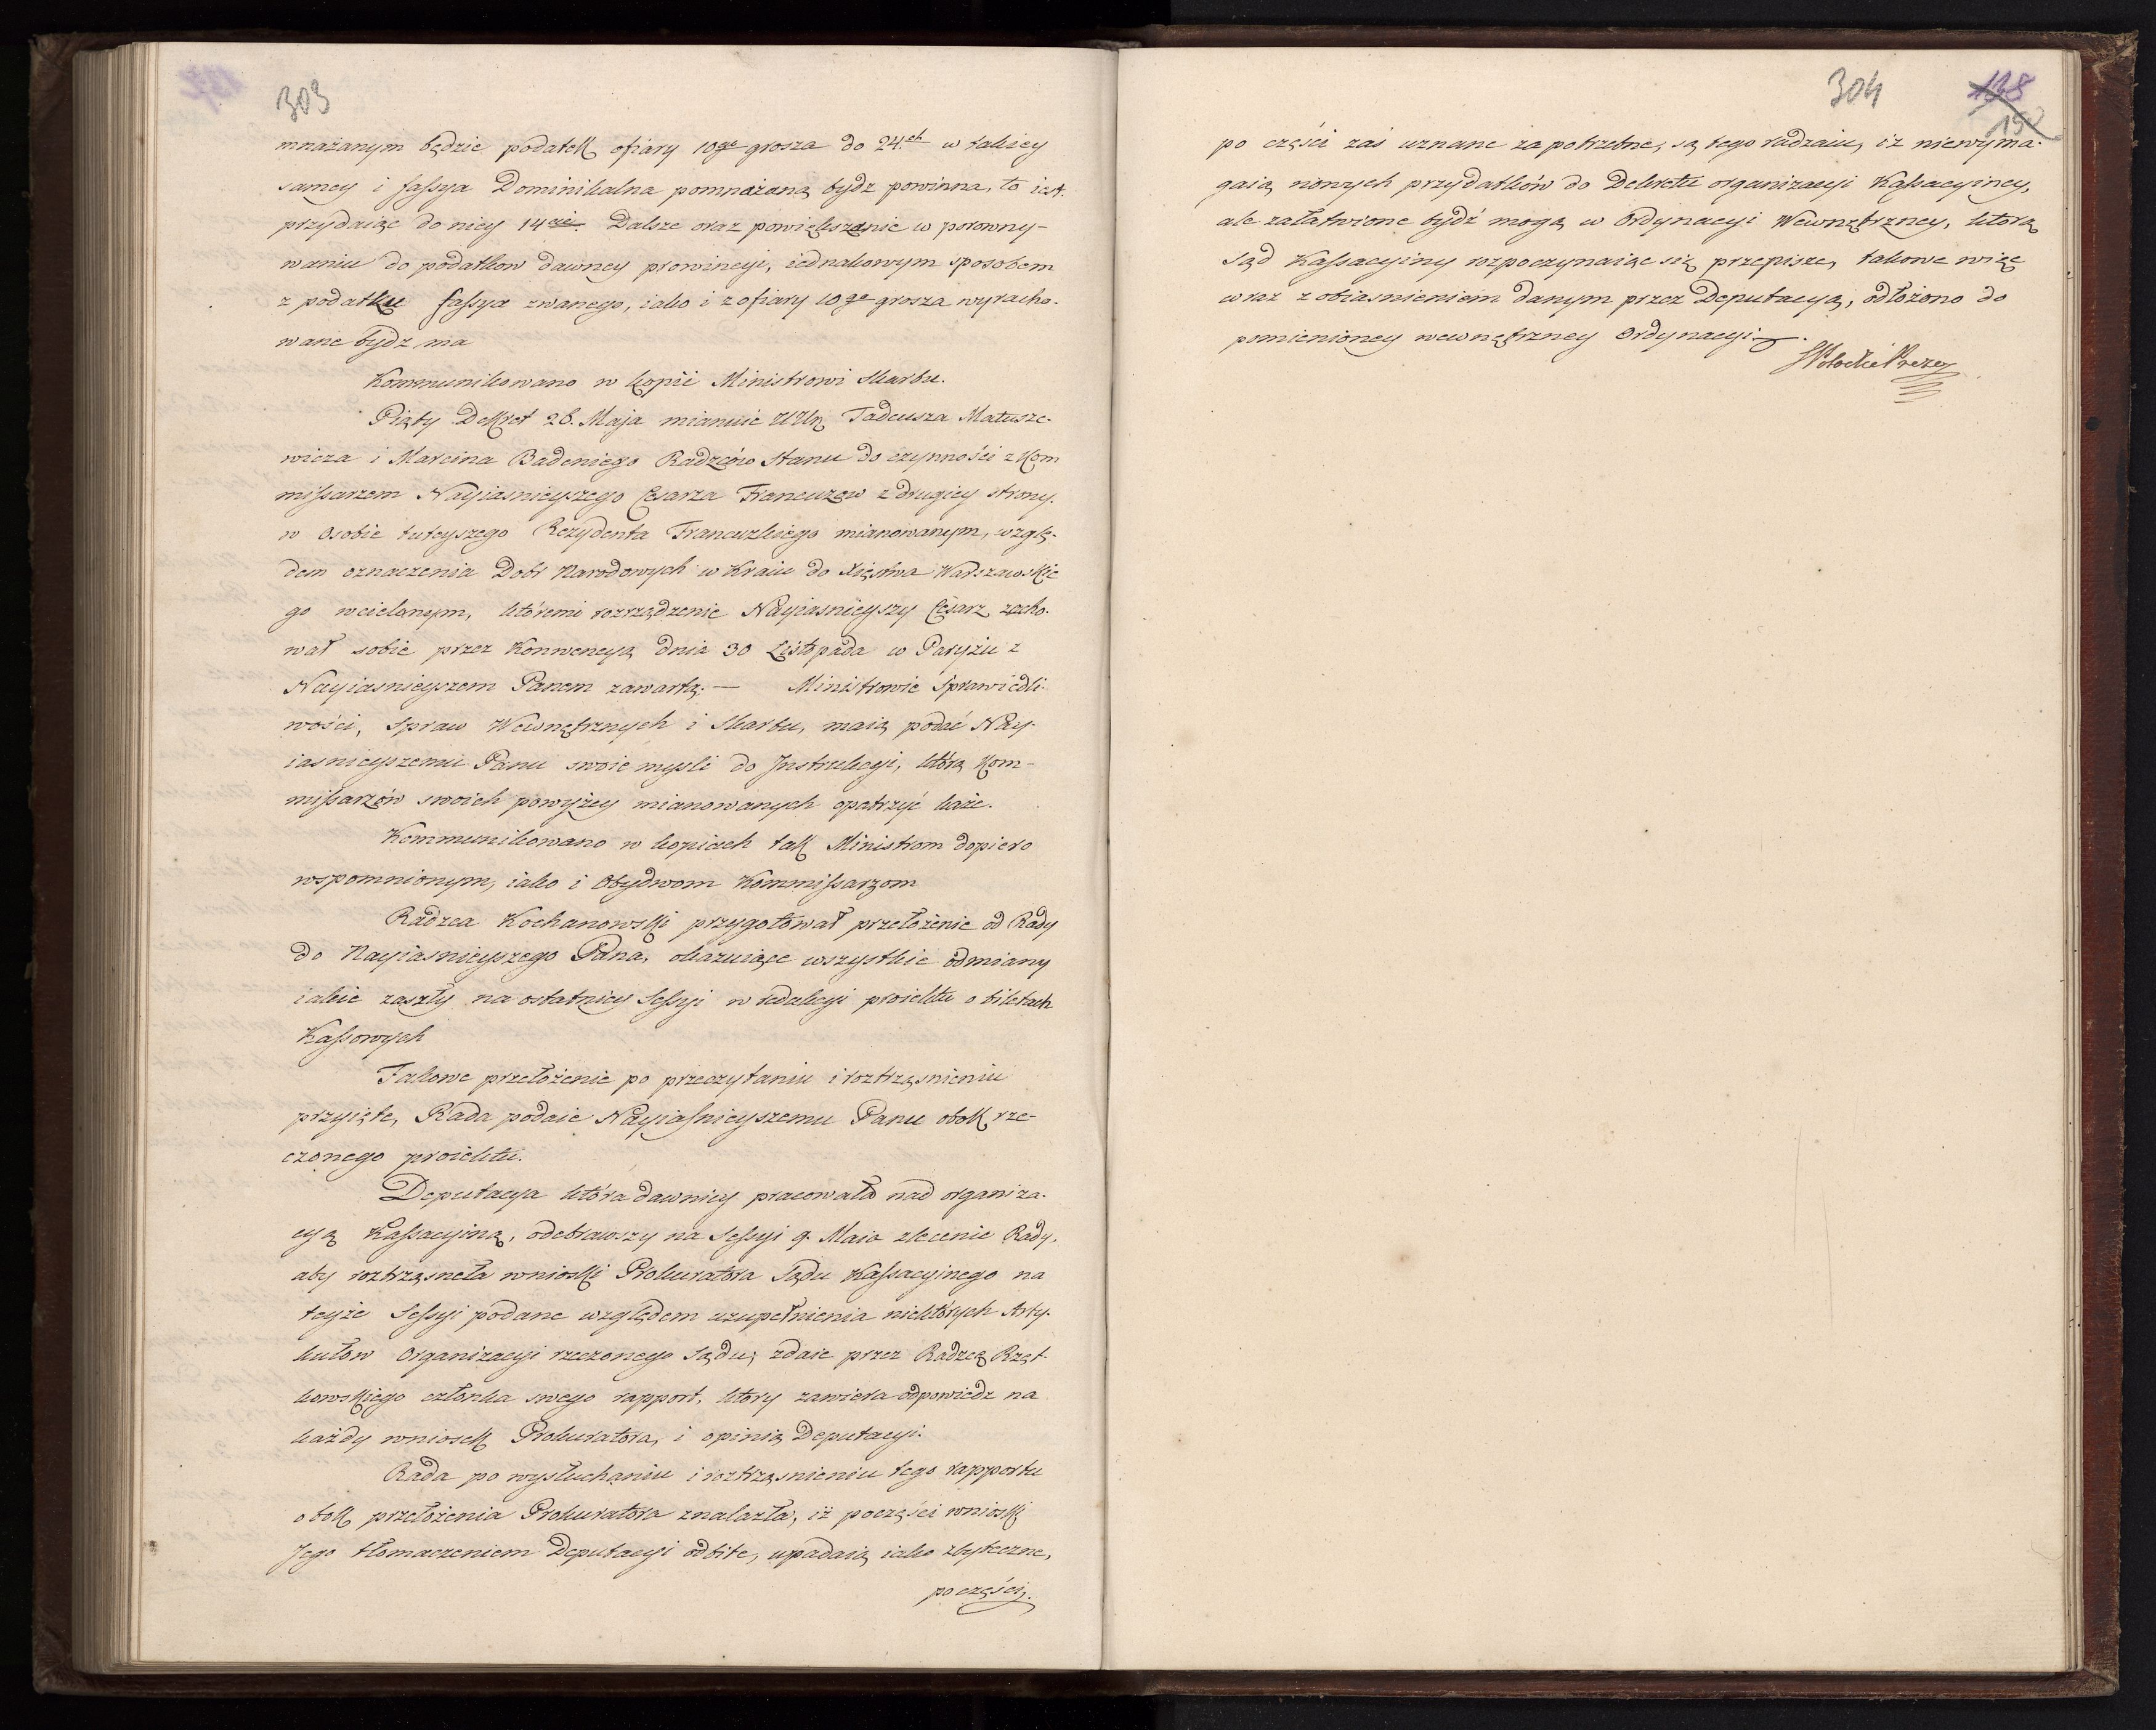 303
mnażanym będzie podatek ofiary 10go grosza do 24.ch w takiey
samey i fassya Dominikalna pomnożoną bydz powinna, to iest.
przydaiąc do niey 14cie. Dalsze oraz powiększenie w porowny-
waniu do podatkow dawney prowincyi, iednakowym sposobem
z podatku fassya zwanego, iako i z ofiary 10go grosza wyracho-
wane bydz ma
Kommunikowano w kopii Ministrowi Skarbu.
Piąty Dekret 26. Maja mianuie Tadeusza Matusze-
wicza i Marcina Badeniego Radzców Stanu do czynności z Kom
missarzem Nayiasnieyszego Cesarza Francuzow z drugiey strony.
w osobie tuteyszego Rezydenta Francuzkiego mianowanym, wzglę-
dem oznaczenia Dobr Narodowych w Kraiu do Xięstwa Warszawskie
go wcielonym, któremi rozrządzenie Nayiasnieyszy Cesarz zacho-
wał sobie przez Konwencyą dnia 30 Listopada w Paryżu z
Nayiasnieyszem Panem zawartą. — Ministrowie Sprawiedli-
wości, Spraw Wewnętrznych i Skarbu, maią podać Nay-
iasnieyszemu Panu swoie mysli do Jnstrukcyi, którą Kom-
missarzów swoich powyżey mianowanych opatrzyć każe.
Kommunikowano w kopiach tak Ministrom dopiero
wspomnionym, iako i Obydwom Kommissarzom
Radzca Kochanowski przygotował przełożenie od Rady
do Nayiasnieyszego Pana, okazuiące wszystkie odmiany
iakie zaszły na ostatniey Sessyi w redakcyi proiektu o biletach
Kassowych
Takowe przełożenie po przeczytaniu i roztrząsnieniu
przyięte, Rada podaie Nayiasnieyszemu Panu obok rze-
czonego proiektu.
Deputacya która dawniey pracowała nad organiza-
cyą Kassacyiną, odebrawszy na Sessyi 9. Maia zlecenie Rady,
aby roztrząsneła wnioski Prokuratora Sądu Kassacyinego na
teyże Sessyi podane względem uzupełnienia niektórych Arty-
kułow Organizacyi rzeczonego Sądu, zdaie przez Radzcę Rzęt-
kowskiego członka swego rapport, który zawiera odpowiedz na
każdy wniosek Prokuratora, i opinią Deputacyi.
Rada po wysłuchaniu i roztrząsnieniu tego rapportu
obok przełożenia Prokuratora znalazła, iż poczęści wnioski
Jego tłomaczeniem Deputacyi odbite, upadaią iako zbyteczne,
po części.
304
138
150
po części zaś uznane za potrzebne, są tego rodzaiu, iż niewyma-
gaią nowych przydatków do Dekretu organizacyi Kassacyiney,
ale załatwione bydź mogą w Ordynacyi Wewnętrzney, którą
Sąd Kassacyiny rozpoczynaiąc się przepisze, takowe więc
wraz z obiasnieniem danym przez Deputacyą, odłożono do
pomienioney wewnętrzney Ordynacyi.
Potocki Prezes